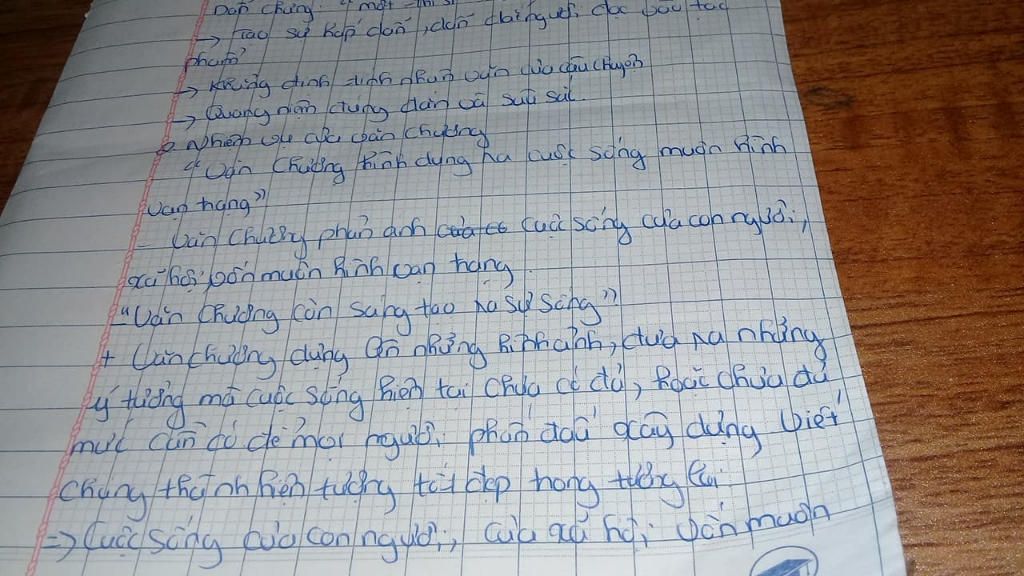 Dẫn chứng: "một thi sĩ
→ Tạo sự hấp dẫn, dẫn dắt người đọc vào tác
phẩm
→ Khẳng định tính nhân văn của câu chuyện
→ Quang niệm đúng đắn và sâu sắc
b. Nhiệm vụ của văn chương
"Văn chương hình dung ra cuộc sống muôn hình
vạn trạng"
- Văn chương phản ánh cuộc sống của con người,
xã hội vốn muôn hình vạn trạng.
- "Văn chương còn sáng tạo ra sự sống"
+ Văn chương dựng lên những hình ảnh, đưa ra những
ý tưởng mà cuộc sống hiện tại chưa có đủ, hoặc chưa đủ
mức cần có để mọi người phấn đấu xây dựng biết
chúng thành hiện tượng tốt đẹp trong tương lai.
=> Cuộc sống của con người, của xã hội vốn muôn